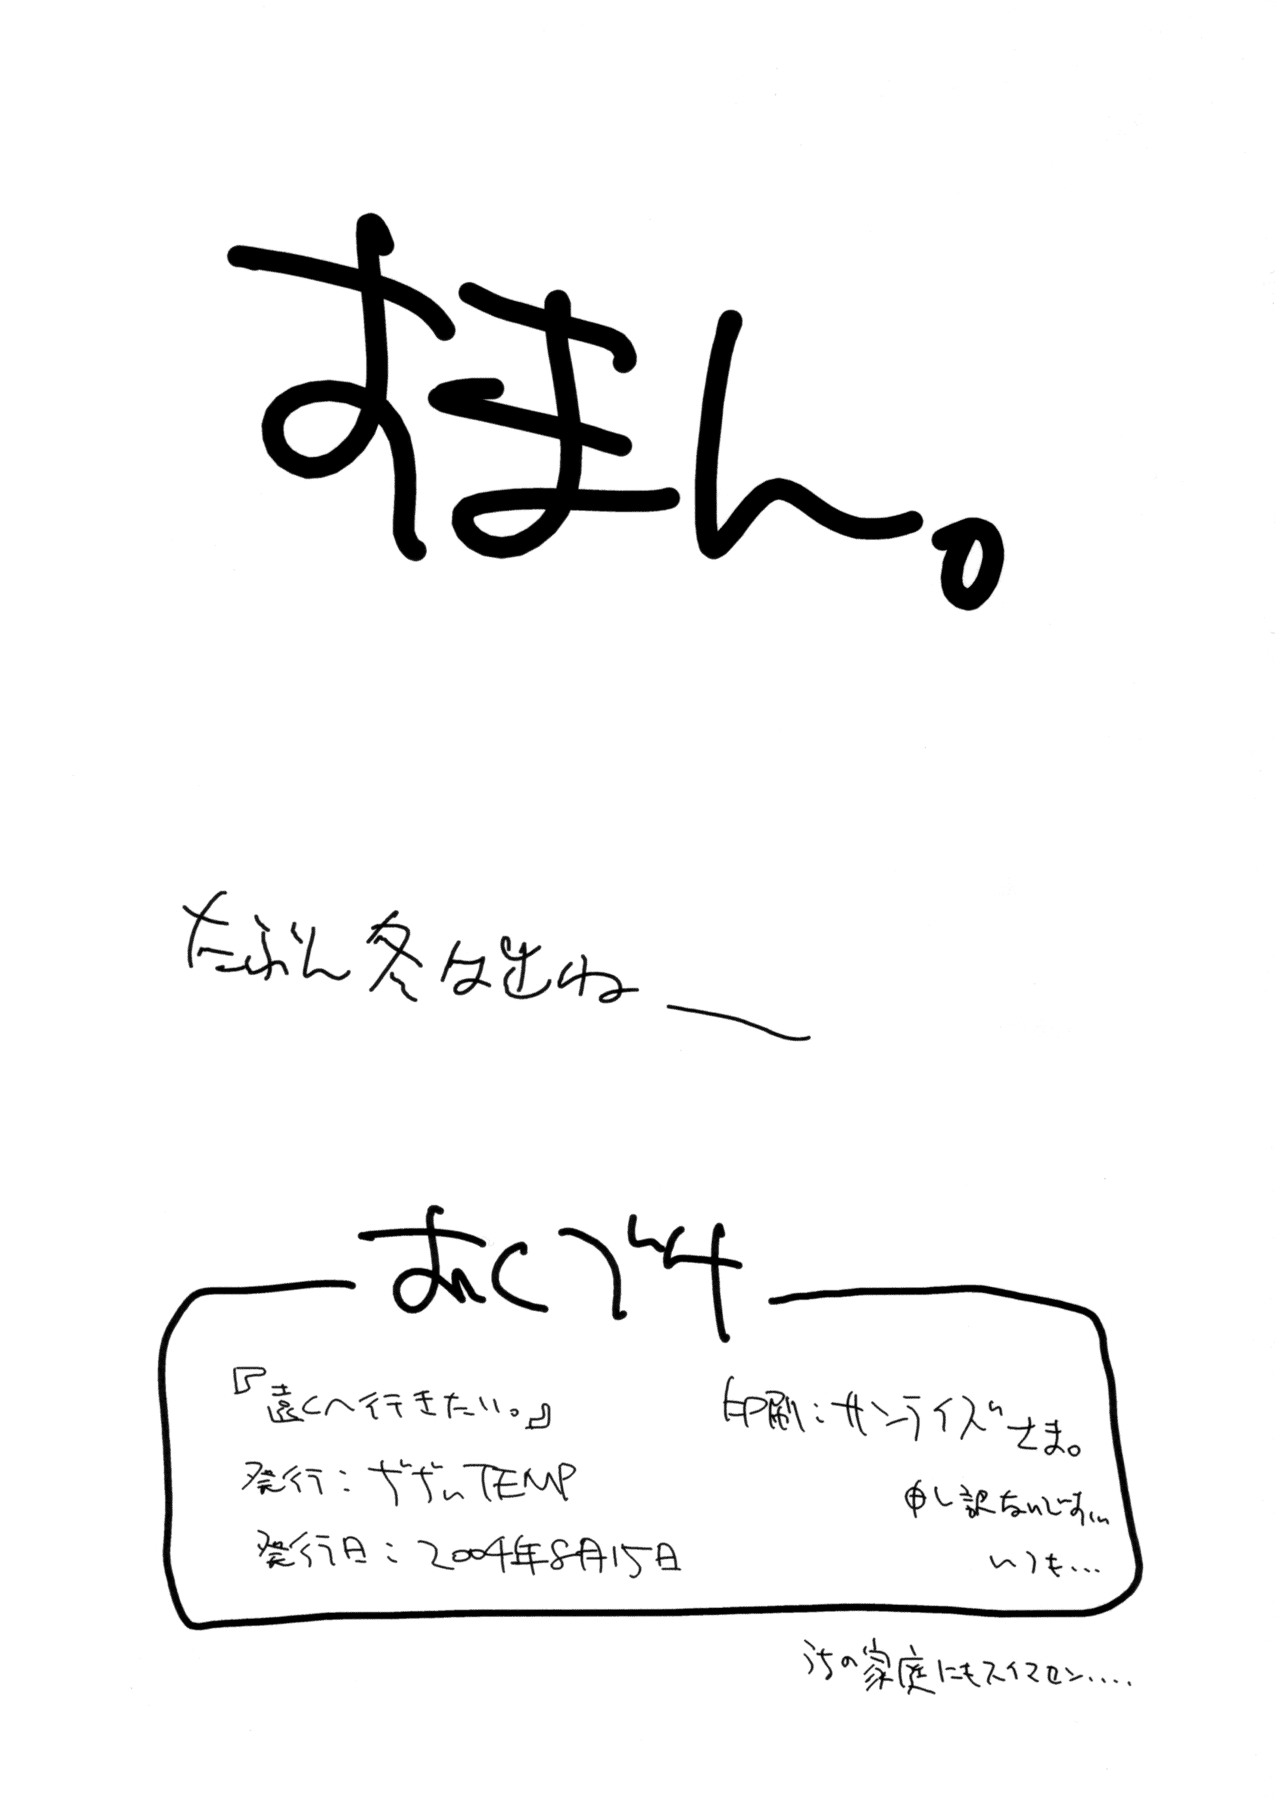 すまん。
たぶん冬は出ね――
おくづけ
『遠くへ行きたい。』
発行：ガガぃTEMP
発行日：2004年8月15日
印刷：サンライズさま。
申し訳ないです…
いつも…
うちの家庭にもスイマセン‥‥